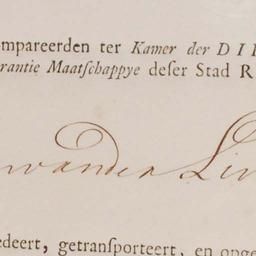 ompareerden ter Kamer der DI
rantie Maatſchappye deſer Stad R
van der Lin
edeert, getranſporteert, en